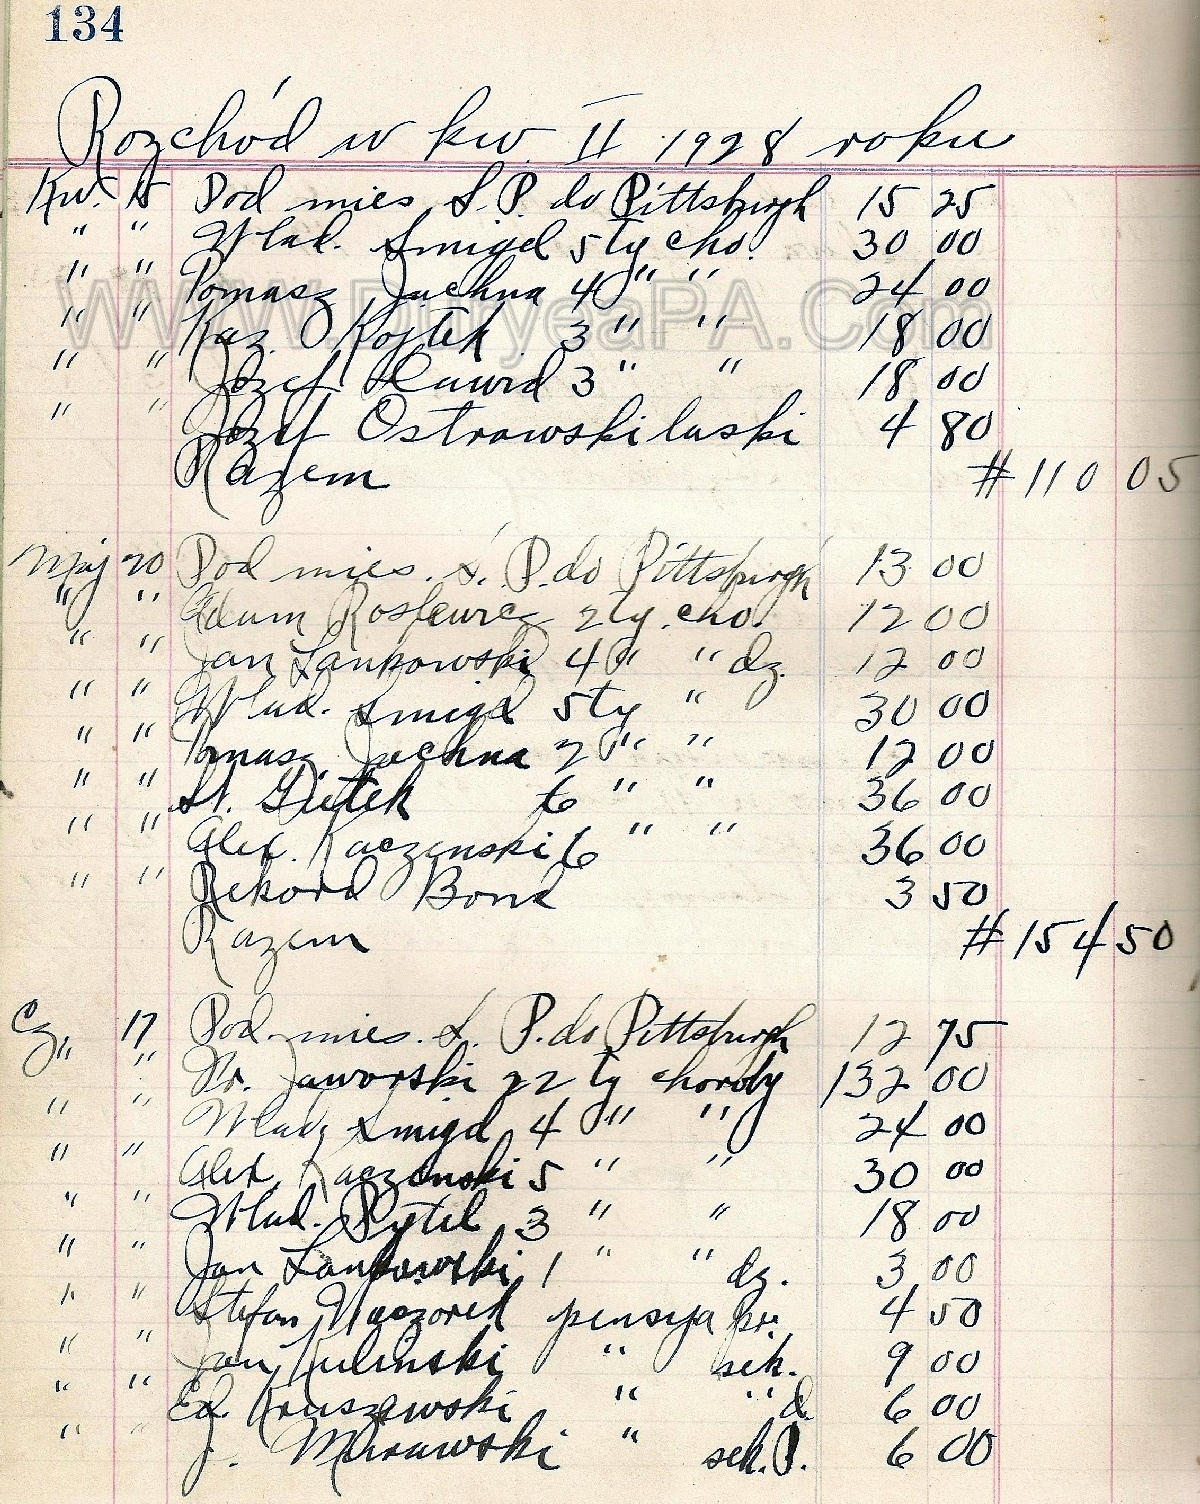 134
Rozchód w kw. II 1928 roku
Kw. 15 Pod mies. S. P. do Pittsburgh 15 25
" " Wlad. Smigel 5 ty cho. 30 00
" " Tomasz Jachna 4 " " 24 00
" " Kaz. Kojtek 3 " " 18 00
" " Józef 3 " " 18 00
" " Józef Ostrowski laski 4 80
Razem # 110 05
Maj 20 Pod mies. S. P. do Pittsburgh 13 00
" " Adam 2 ty. cho. 12 00
" " Jan Lankowski 4 " " dz. 12 00
" " Wlad. Smigel 5 ty " 30 00
" " Tomasz Jachna 2 " " 12 00
" " St. Gutek 6 " " 36 00
" " Alex. Kaczenski 6 " " 36 00
" " Rekord Bond 3 50
Razem # 154 50
Cz. 17 Pod. mies. S. P. do Pittsburgh 12 75
" " Fr. Jaworski 22 ty choroby 132 00
" " Wlad. Smigel 4 " " 24 00
" " Alex. Kaczenski 5 " " 30 00
" " Wlad. Pytel 3 " " 18 00
" " Jan Lankowski 1 " " dz. 3 00
" " Stefan pensya pr. 4 50
" " Jan Kulinski " sek. 9 00
" " Ed. Kruszewski " " d. 6 00
" " J. Murawski " sek. P. 6 00
www.DuryeaPA.Com